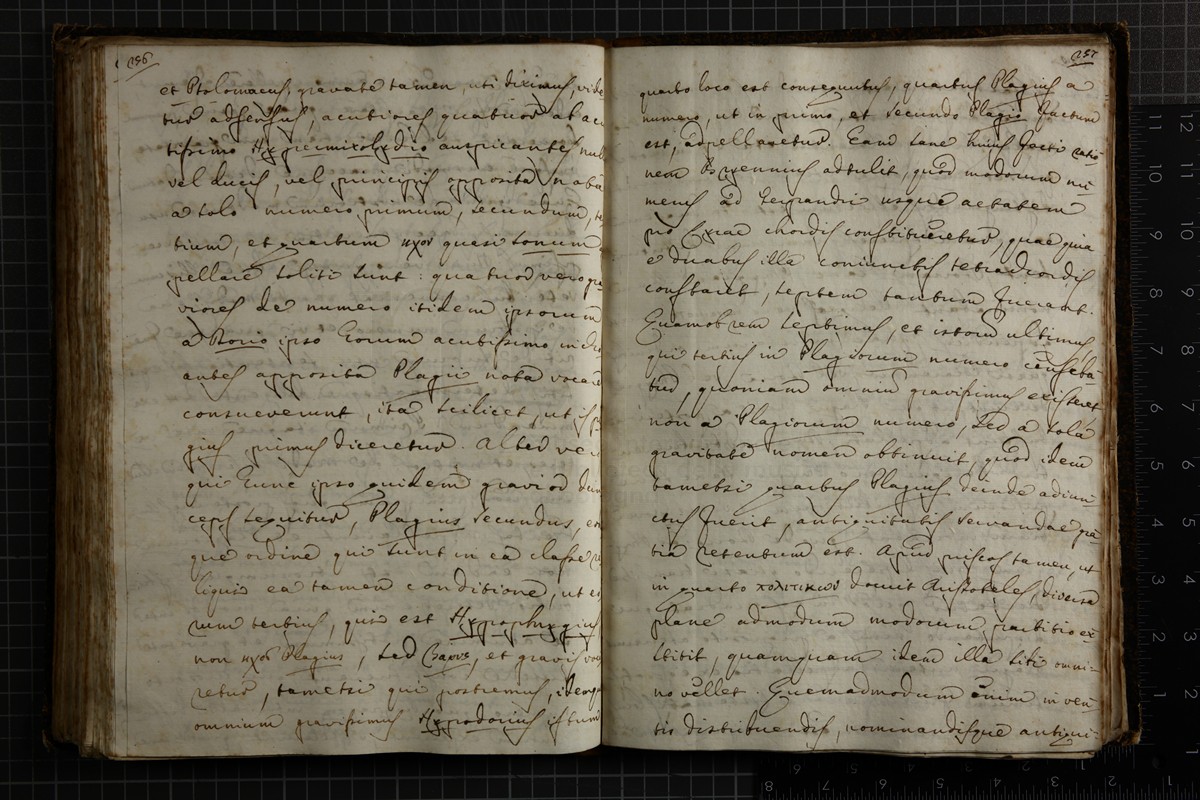 256
et Ptolomaeus, gravate tamen, uti diximus, vide
tur adsensus, acutiores quatuor ab acu
tissimo Hypermixolydio auspicantes nul
vel ducis, vel principis opposita nota
a solo numero primum, secundum, te
tium, et quartum ηχον quasi tonum
pellare soliti sunt: quatuor vero gra
viores de numero itidem ipsorum
a Dorio ipso eorum acutissimo indi
antes apposita Plagii nota vocare
consueverunt, ita scilicet, ut is p
gius primus diceretur. Alter ver
qui hunc ipso quidem gravior dein
ceps sequitur, Plagius secundus, eo
que ordine qui sunt in ea classe re
liquis ea tamen conditione, ut eo
rum tertius, quis est Hypophrygius
non ηχος Plagius, sed βαρυς, et gravis voca
retur, tametsi qui postremus, idemq
omnium gravissimus Hypodorius istum
257
quarto loco est consequutus, quartus Plagius a
numero, ut in primo, et secundo Plagio factum
est, adpellaretur. Eam sane huius facti ratio
nem Bryennius adtulit, quod modorum nu
merus ad Terpandri usque aetatem
pro lyrae chordis constitueretur, quae quia
e duabus illa coniunctis tetrachordis
constaret, septem tantum fuerant.
Quamobrem septimus, et istorum ultimus
qui tertius in Plagiorum numero censeba
tur, quoniam omnium gravissimus existeret
non a Plagiorum numero, sed a sola
gravitate nomen obtinuit, quod idem
tametsi quartus Plagius deinde adiun
ctus fuerit, antiquitatis servandae gra
tia retentum est. Apud priscos tamen, ut
in quarto πολιτικων docuit Aristoteles, diversa
plane admodum modorum partitio ex
stitit, quamquam idem illa sibi omni
no vellet. Quemadmodum enim in ven
tis distribuendis, nominandisque antiqui